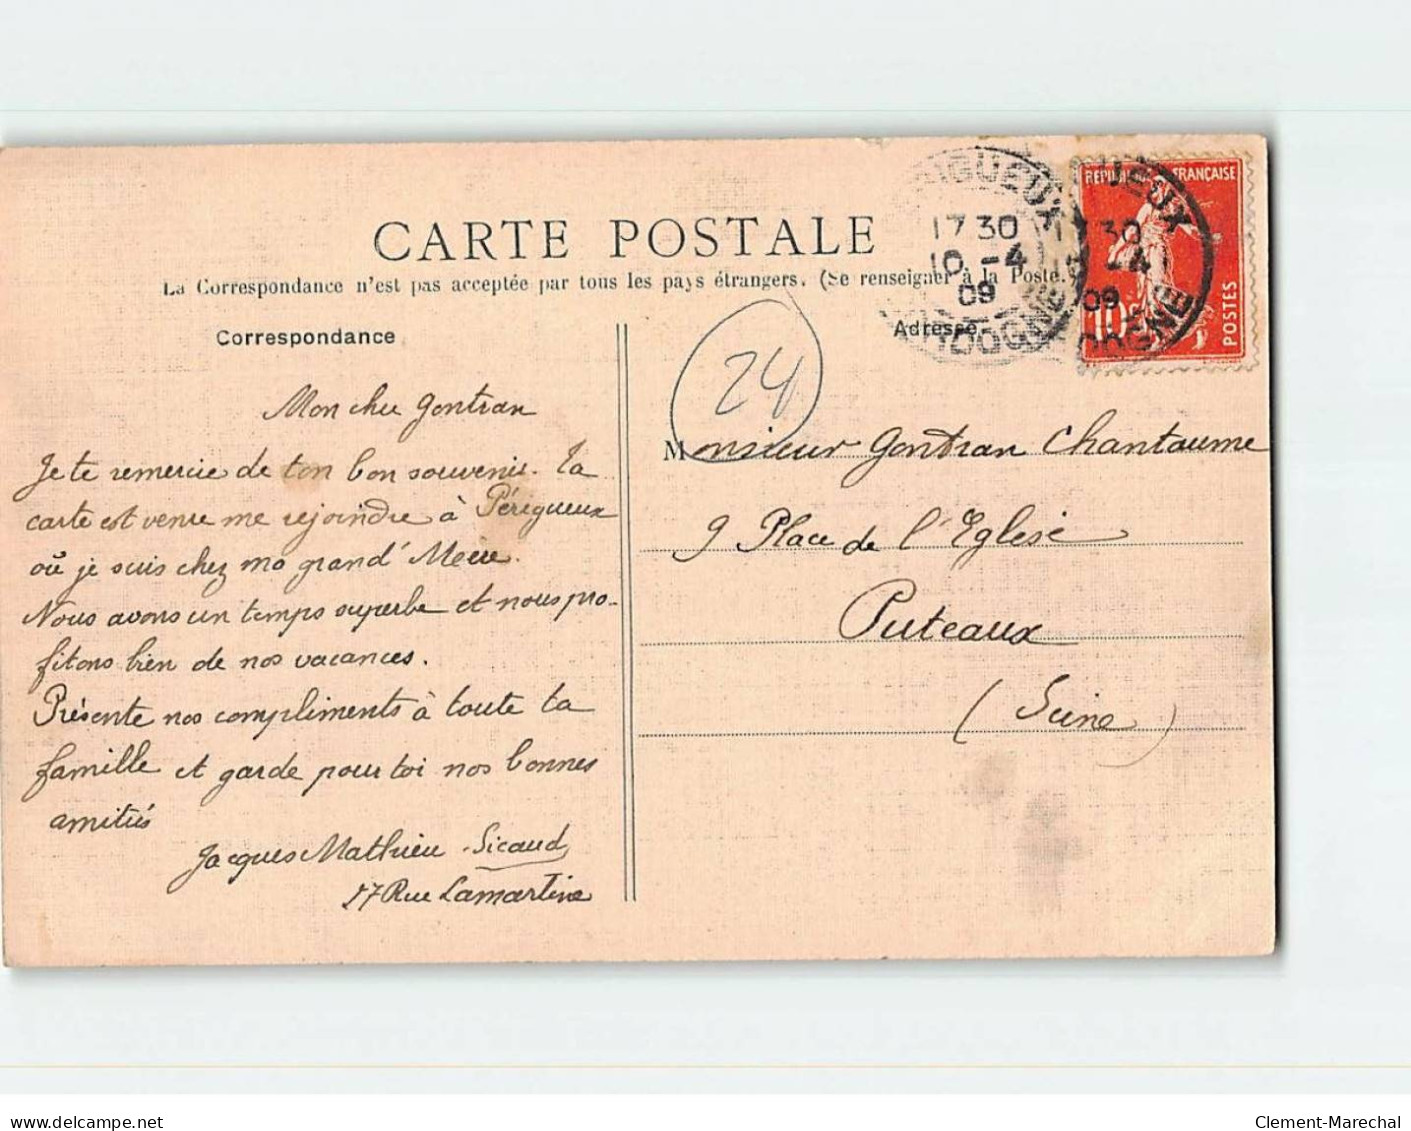 CARTE POSTALE
La Correspondance n'est pas acceptée par tous les pays étrangers. (Se renseigner à la Poste.
Correspondance
Adresse
RÉPUBLIQUE FRANÇAISE
10
POSTES
IGUEUX
17 30
10 -4
09
DORDOGNE
UEUX
17 30
10 -4
09
DOGNE
24
Mon cher Gontran
Je te remercie de ton bon souvenir. Ta
carte est venue me rejoindre à Périgueux
où je suis chez ma grand' Mère.
Nous avons un temps superbe et nous pro-
fitons bien de nos vacances.
Présente nos compliments à toute ta
famille et garde pour toi nos bonnes
amitiés
Jacques Mathieu-Sicaud
17 Rue Lamartine
Monsieur Gontran Chantaume
9 Place de l'Eglise
Puteaux
(Seine)
delcampe.net
Clement-Marechal